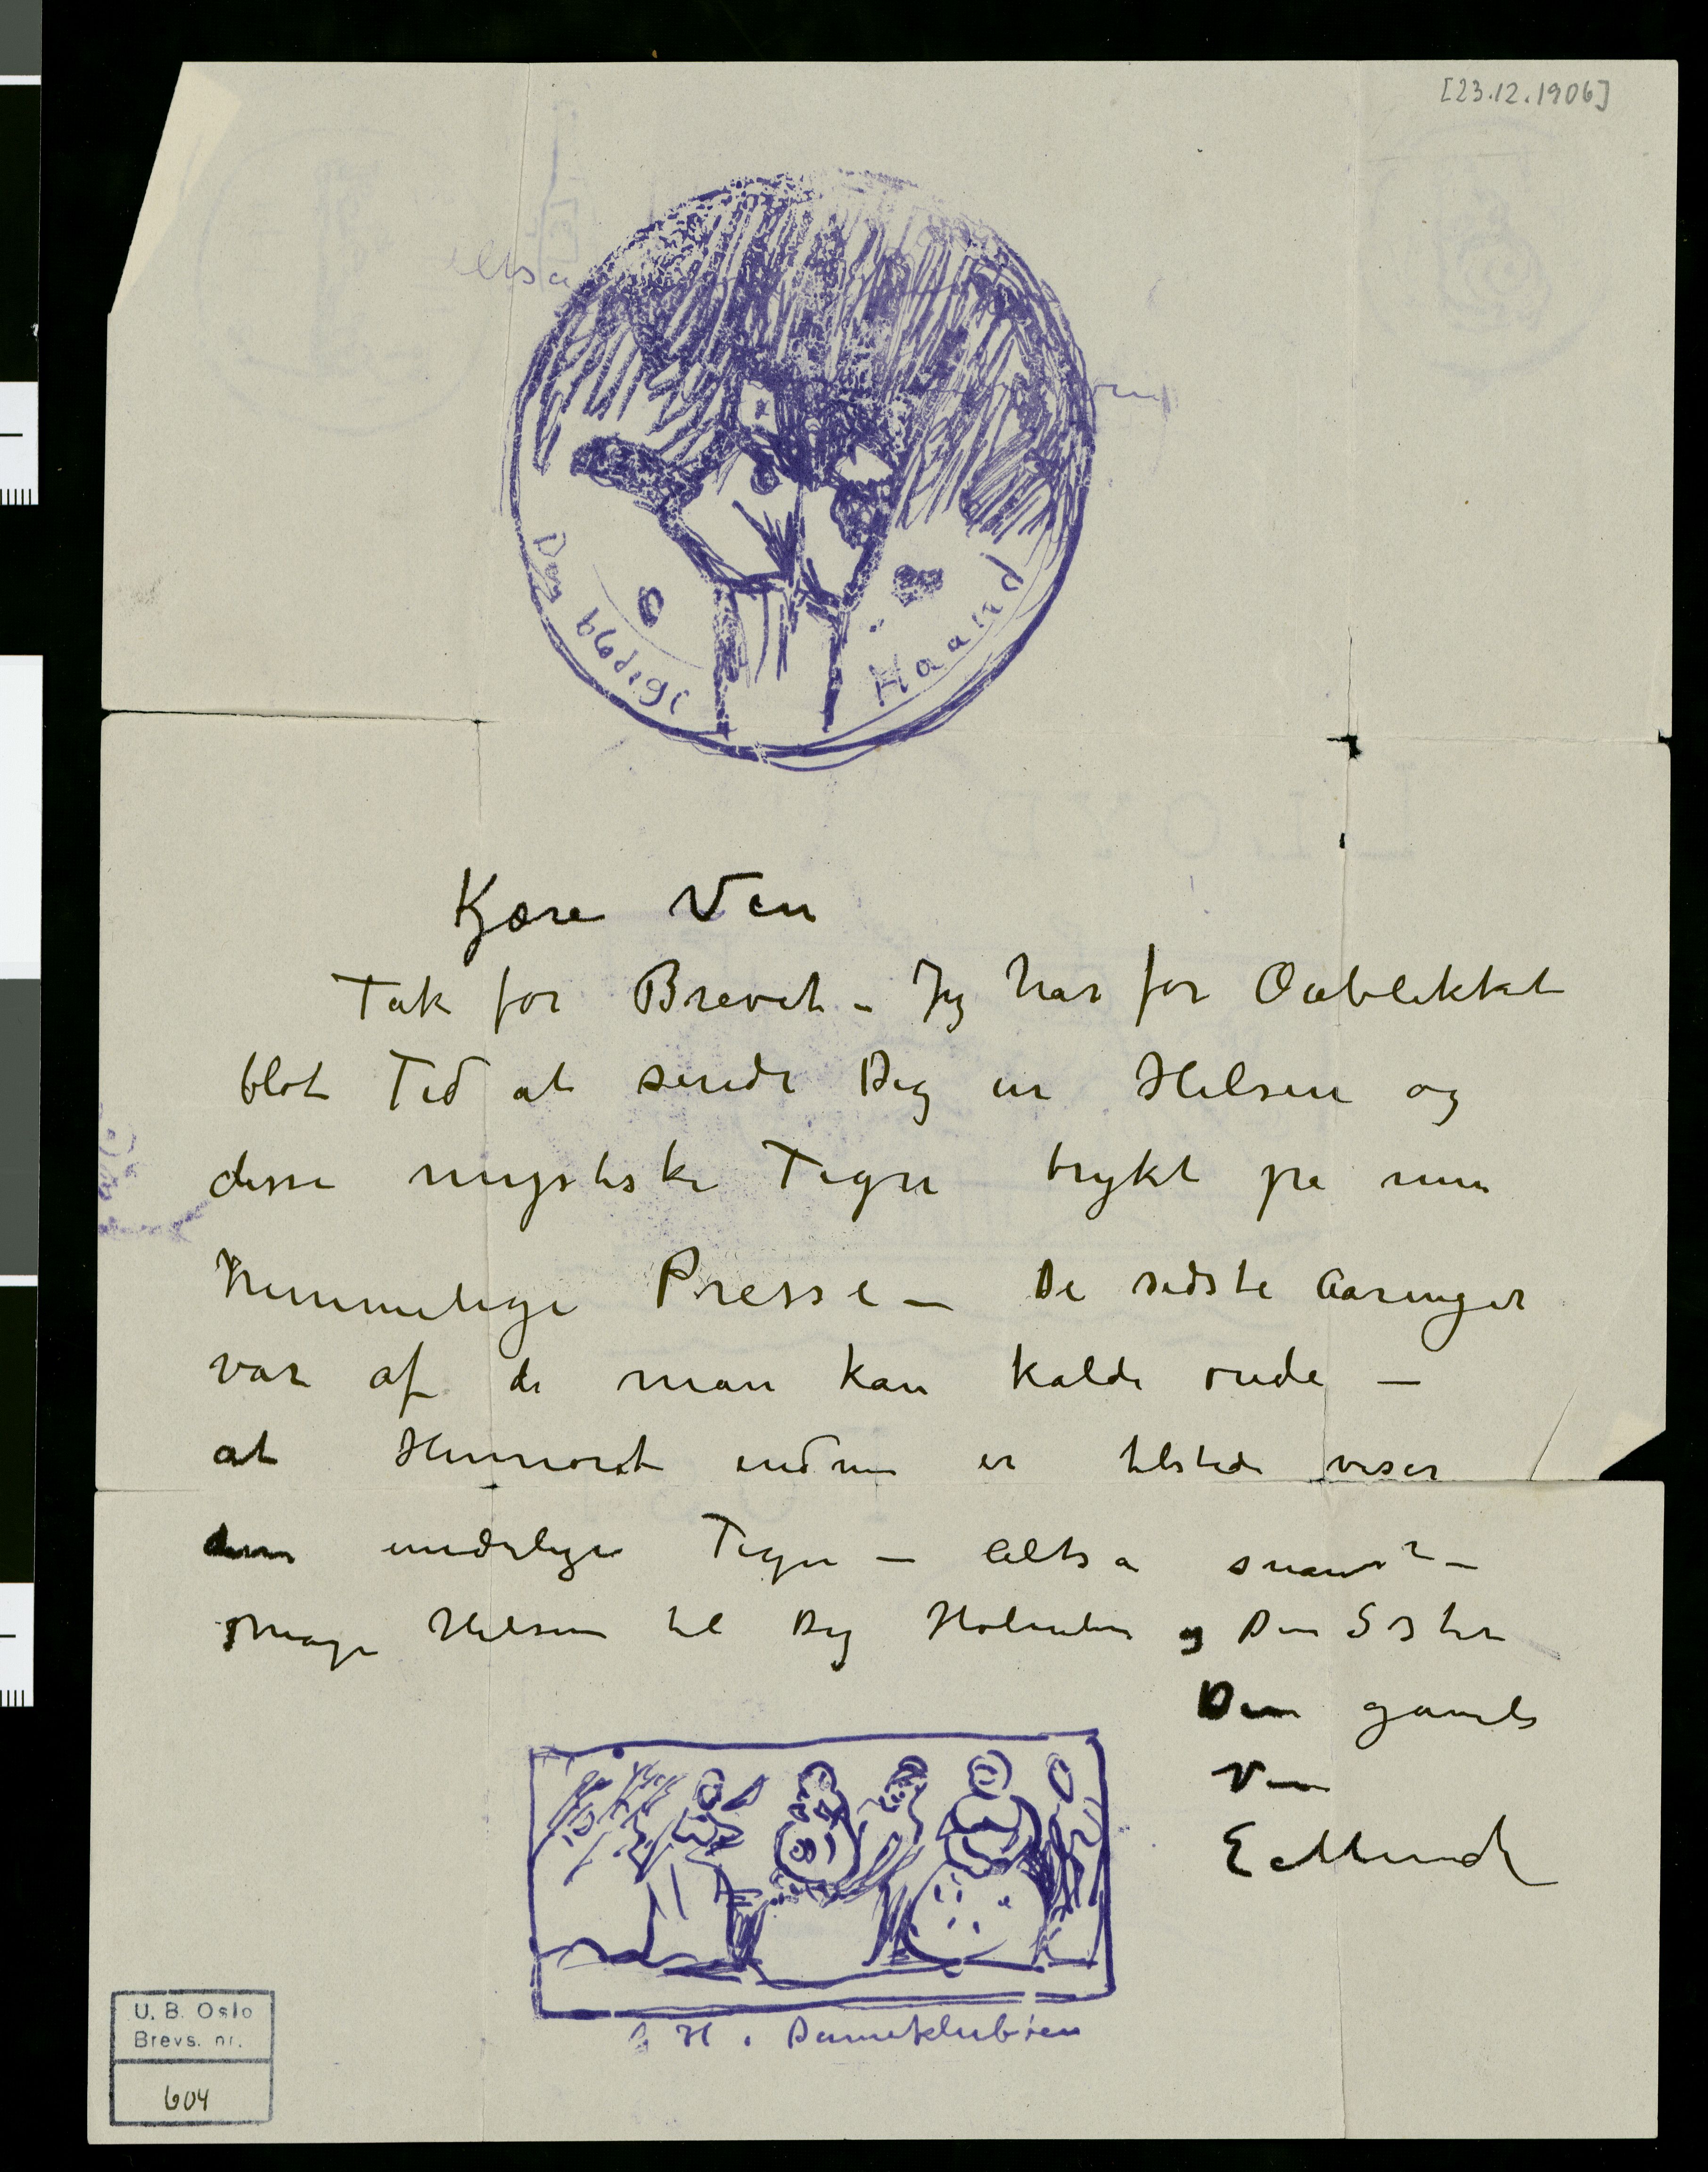 [23.12.1906]
Den blodige Haand
Kjære Ven
Tak for Brevet – Jeg har for Øieblikket
blot Tid at sende Dig en Hilsen og
disse mystiske Tegn trykt på min
hemmelige Presse – De sidste Aaringer
var af de man kan kalde onde –
at Humoret endnu er tilstede viser
underlige Tegn – Altså snart –
Mange Hilsen til Dig Holmboe og Din Søster
Din gamle
Ven
E Munch
H. i Dameklubben
U. B. Oslo
Brevs. nr.
604